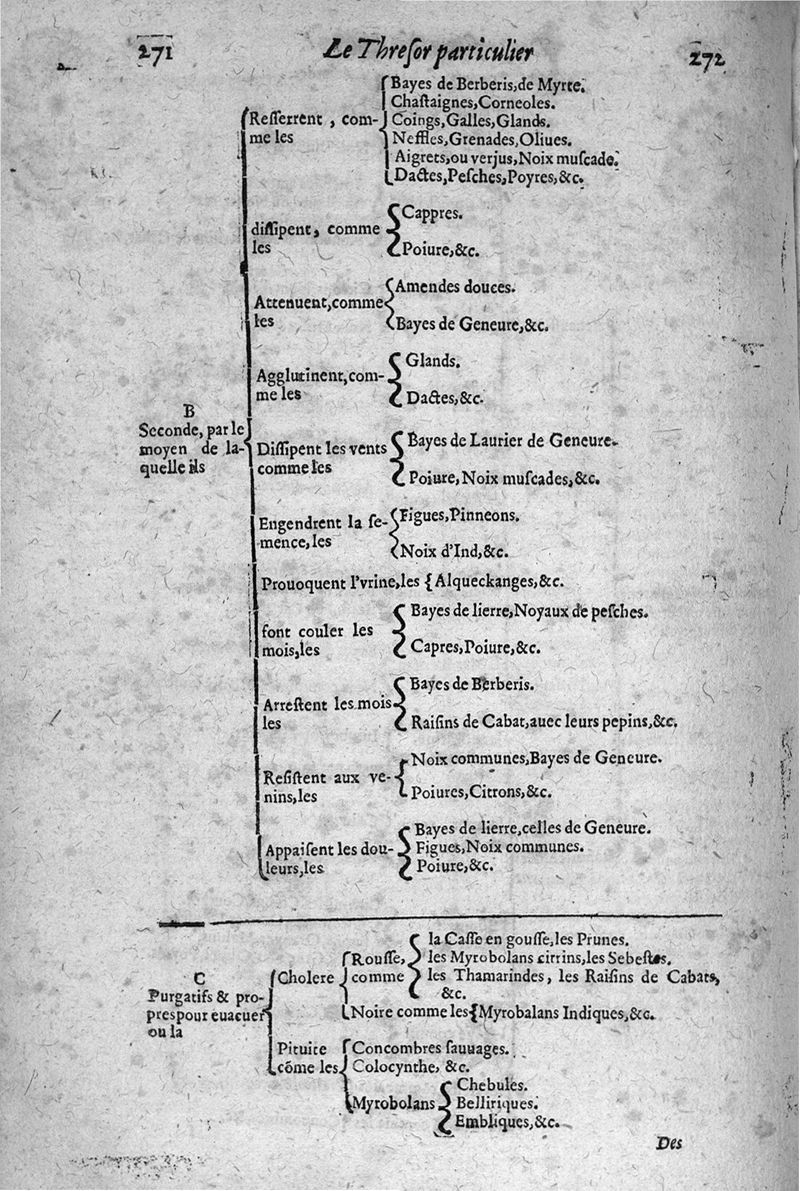 271 Le Threſor particulier 272
Reſſerrent, com-
me les
Bayes de Berberis, de Myrte.
Chaſtaignes, Corneoles.
Coings, Galles, Glands.
Neffles, Grenades, Oliues.
Aigrets, ou verjus, Noix muſcade.
Dactes, Peſches, Poyres, &c.
diſſipent, comme
les
Cappres.
Poiure, &c.
Attenuent, comme
les
Amendes douces.
Bayes de Geneure, &c.
Agglutinent, com-
me les
Glands.
Dactes, &c.
B
Seconde, par le
moyen de la-
quelle ils
Diſſipent les vents
comme les
Bayes de Laurier de Geneure.
Poiure, Noix muſcades, &c.
Engendrent la ſe-
mence, les
Figues, Pinneons.
Noix d'Ind, &c.
Prouoquent l'vrine, les { Alqueckanges, &c.
font couler les
mois, les
Bayes de lierre, Noyaux de peſches.
Capres, Poiure, &c.
Arreſtent les mois
les
Bayes de Berberis.
Raiſins de Cabat, auec leurs pepins, &c.
Reſiſtent aux ve-
nins, les
Noix communes, Bayes de Geneure.
Poiures, Citrons, &c.
Appaiſent les dou-
leurs, les
Bayes de lierre, celles de Geneure.
Figues, Noix communes.
Poiure, &c.
C
Purgatifs & pro-
pres pour euacuer
ou la
Cholere
Rouſſe,
comme
la Caſſe en gouſſe, les Prunes.
les Myrobolans cirrins, les Sebeſtes.
les Thamarindes, les Raiſins de Cabats,
&c.
Noire comme les { Myrobalans Indiques, &c.
Pituite
cõme les
Concombres ſauuages.
Colocynthe, &c.
Myrobolans
Chebules.
Belliriques.
Embliques, &c.
Des